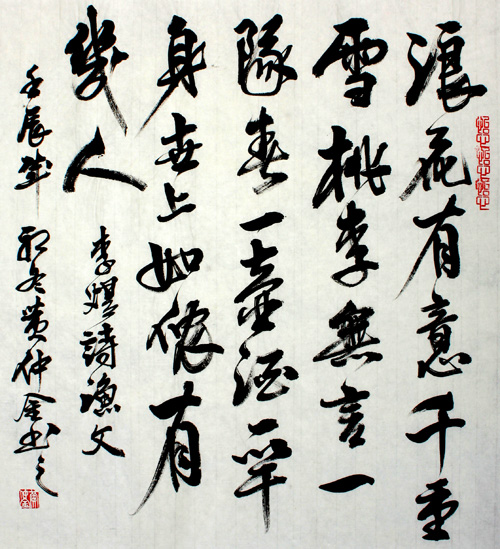 浪花有意千重
雪桃李無言一
隊春一壺酒一竿
身世上如儂有
幾人
李煜詩漁父
壬辰年 初冬仲金书之